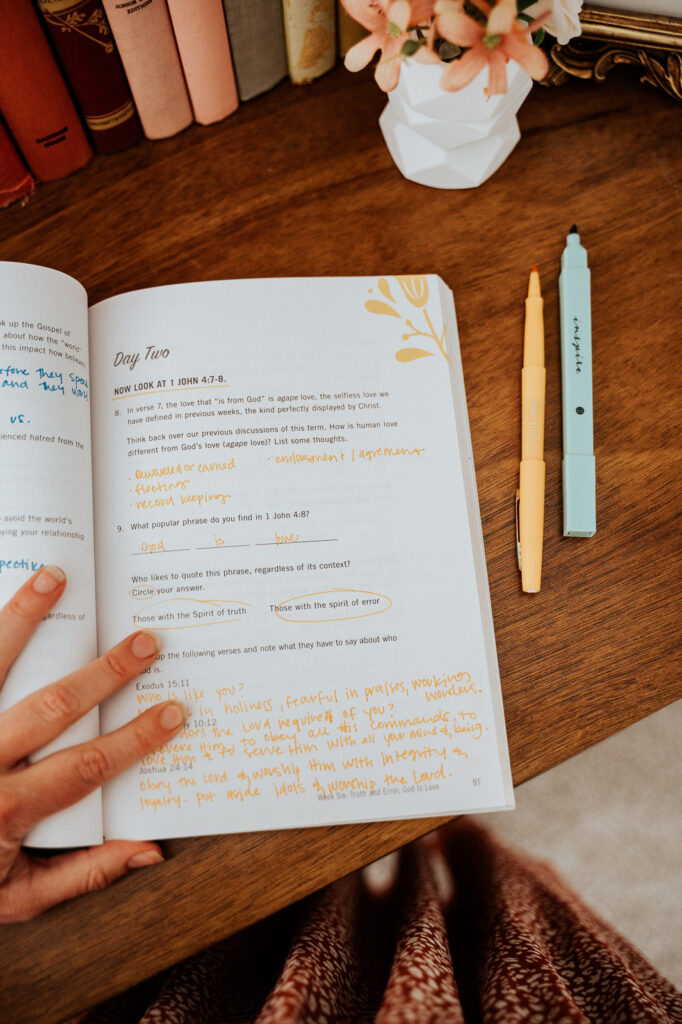 JUNIOR
EDITIONS
k up the Gospel of
about how the "world"
this impact how believers
before they spoke
and they
vs.
ienced hatred from the
o avoid the world's
ying your relationship
spective
gardless of
Day Two
NOW LOOK AT 1 JOHN 4:7-8.
8. In verse 7, the love that "is from God" is agape love, the selfless love we
have defined in previous weeks, the kind perfectly displayed by Christ.
Think back over our previous discussions of this term. How is human love
different from God's love (agape love)? List some thoughts.
· Rewarded or earned · endorsement / agreement
· fleeting
· record keeping
9. What popular phrase do you find in 1 John 4:8?
God is love
Who likes to quote this phrase, regardless of its context?
Circle your answer.
Those with the Spirit of truth Those with the spirit of error
up the following verses and note what they have to say about who
d is.
Exodus 15:11
Who is like you?
in holiness, fearful in praises, working
wonders.
y 10:12
does the Lord require of you?
revere Him to obey all His commands, to
love Him & to serve Him with all your mind & being.
Joshua 24:14
obey the Lord & worship Him with integrity &
loyalty. put aside idols & worship the Lord.
Week Six: Truth and Error: God Is Love 91
inspire